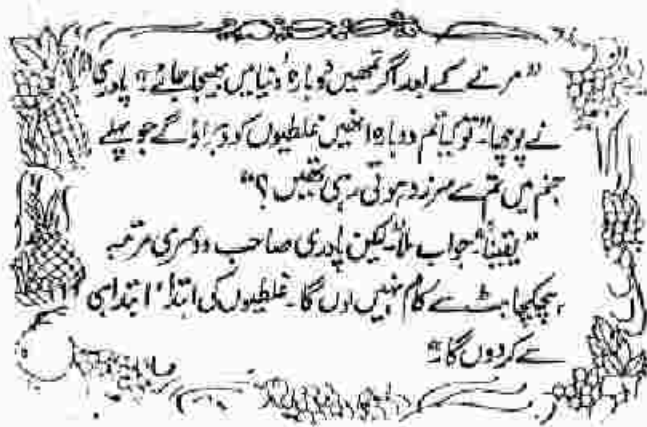 ”مرنے کے بعد اگر تمھیں دوبارہ دنیا میں بھیجا جائے“ پادری
نے پوچھا۔ ”تو کیا تم دوبارہ انہیں غلطیوں کو دہراؤ گے جو پہلے
جنم میں تم سے سرزد ہوتی رہی تھیں؟“
”یقیناً“ جواب ملا۔ ”لیکن پادری صاحب دوسری مرتبہ
ہچکچاہٹ سے کام نہیں لوں گا۔ غلطیوں کی ابتدا، ابتدا ہی
سے کردوں گا۔“